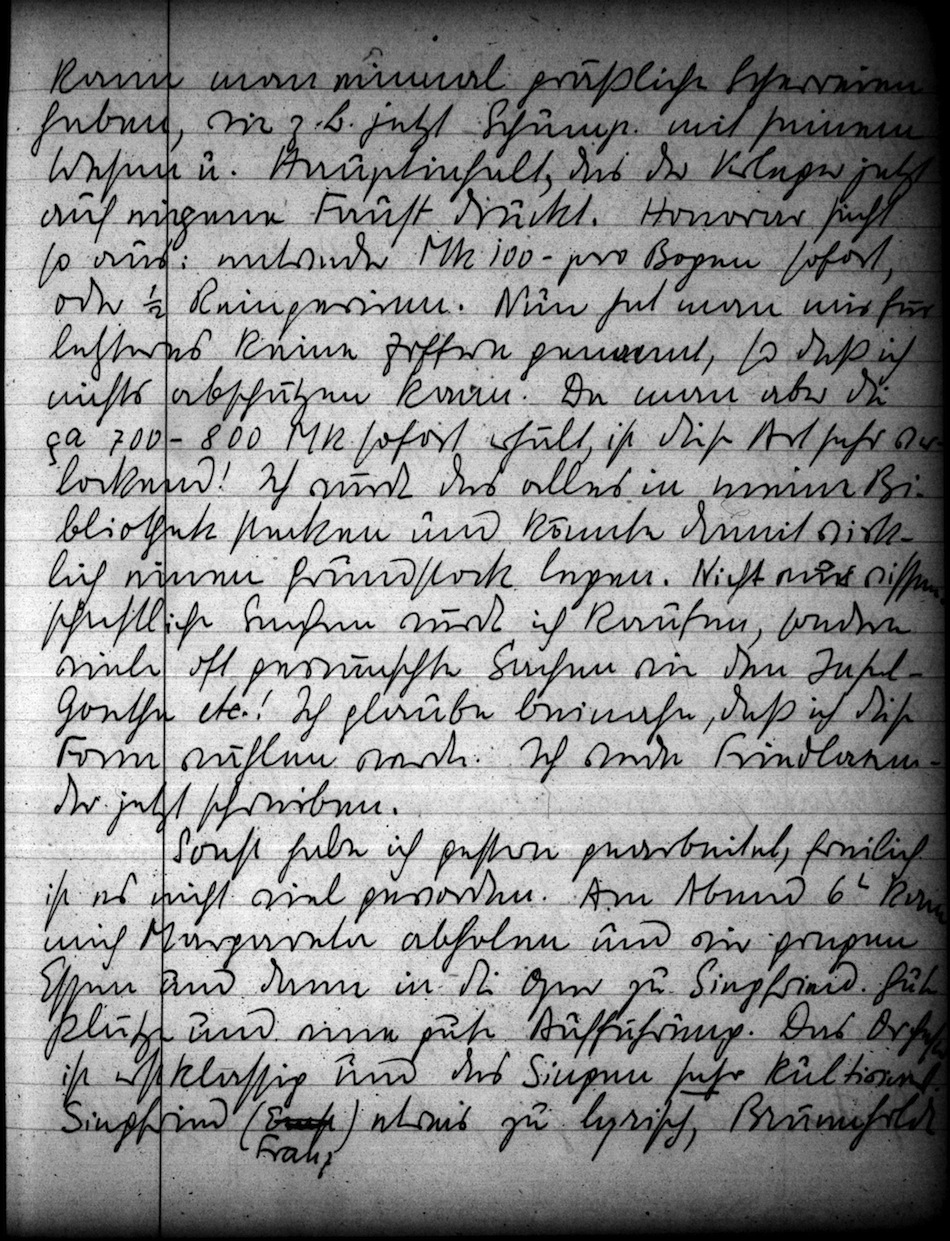 kann man einmal gräßliche Scherereien
haben, wie z. B. jetzt Schümp. mit seinem
Wesen u. Hauptinhalt, das der Verleger jetzt
auf eigene Faust druckt. Honorar sieht
so aus: entweder Mk 100- pro Bogen sofort,
oder ½ Reingewinn. Nun hat man mir für
letzteres keine Ziffern genannt, so daß ich
nichts abschätzen kann. Da man aber die
ça 700-800 Mk sofort erhält, ist diese Art sehr ver-
lockend! Ich würde das alles in meine Bi-
bliothek stecken und könnte damit wirk-
lich einen Grundstock legen. Nicht nur wissen-
schaftliche Sachen würde ich kaufen, sondern
viele oft gewünschte Sachen wie den Insel-
Goethe etc.! Ich glaube beinahe, daß ich diese
Form wählen werde. Ich werde Friedlaen-
der jetzt schreiben.
Sonst habe ich gestern gearbeitet, freilich
ist es nicht viel geworden. Am Abend 6h kam
mich Margarete abholen und wir gingen
Essen und dann in die Oper zu Siegfried. Gute
Plätze und eine gute Aufführung. Das Orchester
ist erstklassig und das Singen sehr kultiviert.
Siegfried (Franz) etwas zu lyrisch, Brünnhilde